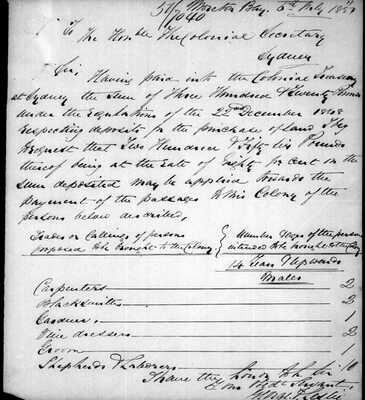 51/1040 Moreton Bay. 6th July 1851
To The Honble The Colonial Secretary
Sydney
Sir, Having paid into the Colonial Treasury
at Sydney the sum of Three Hundred & Twenty
under the Regulations of the 22nd December
respecting deposits for the purchase of land, I beg
request that Two Hundred & Fifty six Pounds
thereof being at the rate of eighty per cent on the
sum deposited may be applied towards the
payment of the passages to this Colony of the
persons below described,
Trades or Callings of persons
proposed to be brought to the Colony
Number & Ages of the persons
intended to be brought to the Colony
14 Years & Upwards
Males
Carpenters 2
Blacksmiths 2
Gardener 1
Vine dressers 2
Groom 1
Shepherds & Laborers 10
I have the honor to be Sir
Your Obdt Servant,